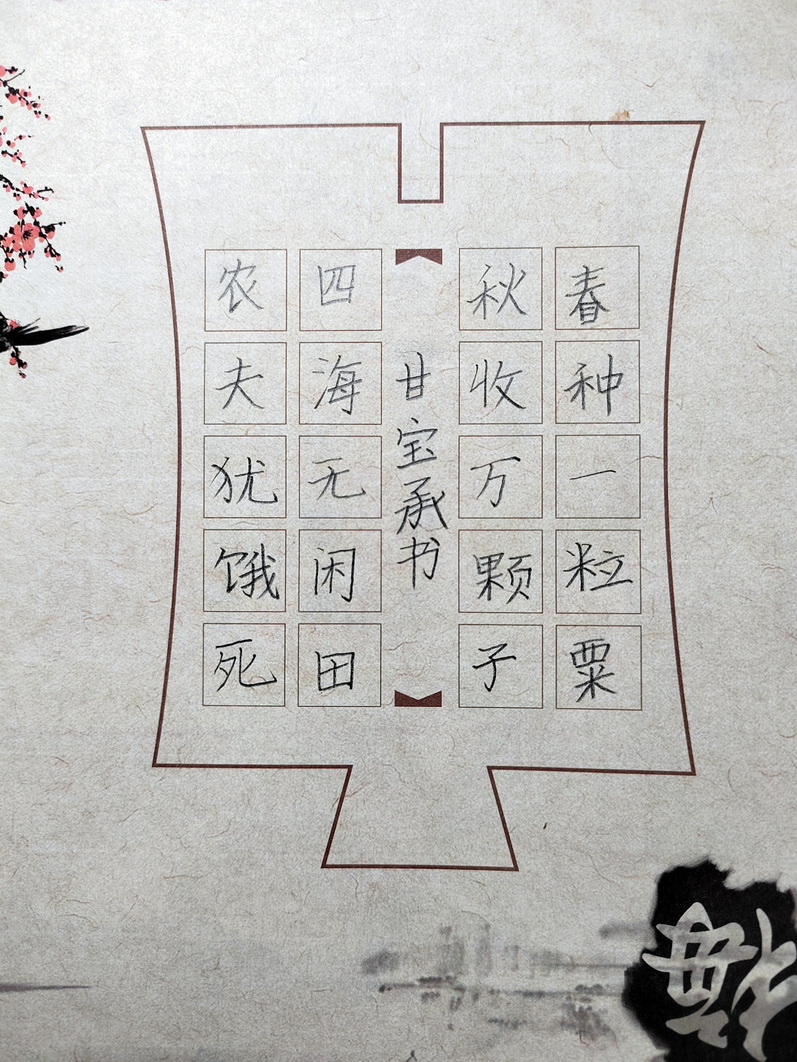 春种一粒粟
秋收万颗子
甘宝承书
四海无闲田
农夫犹饿死